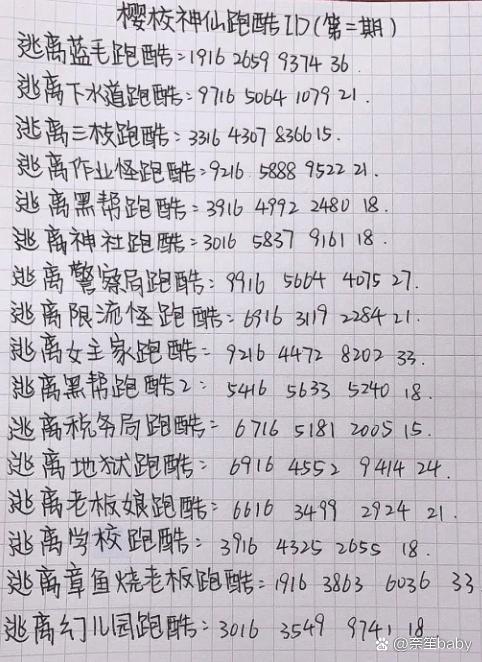 樱校神仙跑酷ID(第二期)
逃离蓝毛跑酷:1916 2659 9374 36
逃离下水道跑酷:9716 5064 1079 21.
逃离三枝跑酷:3316 4307 8366 15.
逃离作业怪跑酷:9216 5888 9522 21.
逃离黑帮跑酷:3916 4992 2480 18.
逃离神社跑酷:3016 5837 9161 18.
逃离警察局跑酷:9916 5664 4075 27.
逃离限流怪跑酷:6916 3119 2284 21.
逃离女主家跑酷:9216 4472 8202 33.
逃离黑帮跑酷2:5416 5633 5240 18.
逃离税务局跑酷:6716 5181 2005 15.
逃离地狱跑酷:6916 4552 9414 24.
逃离老板娘跑酷:6616 3499 2924 21.
逃离学校跑酷:3916 4325 2655 18.
逃离章鱼烧老板跑酷:1916 3863 6036 33
逃离幻儿园跑酷:3016 3549 9741 18.
@奈笙baby